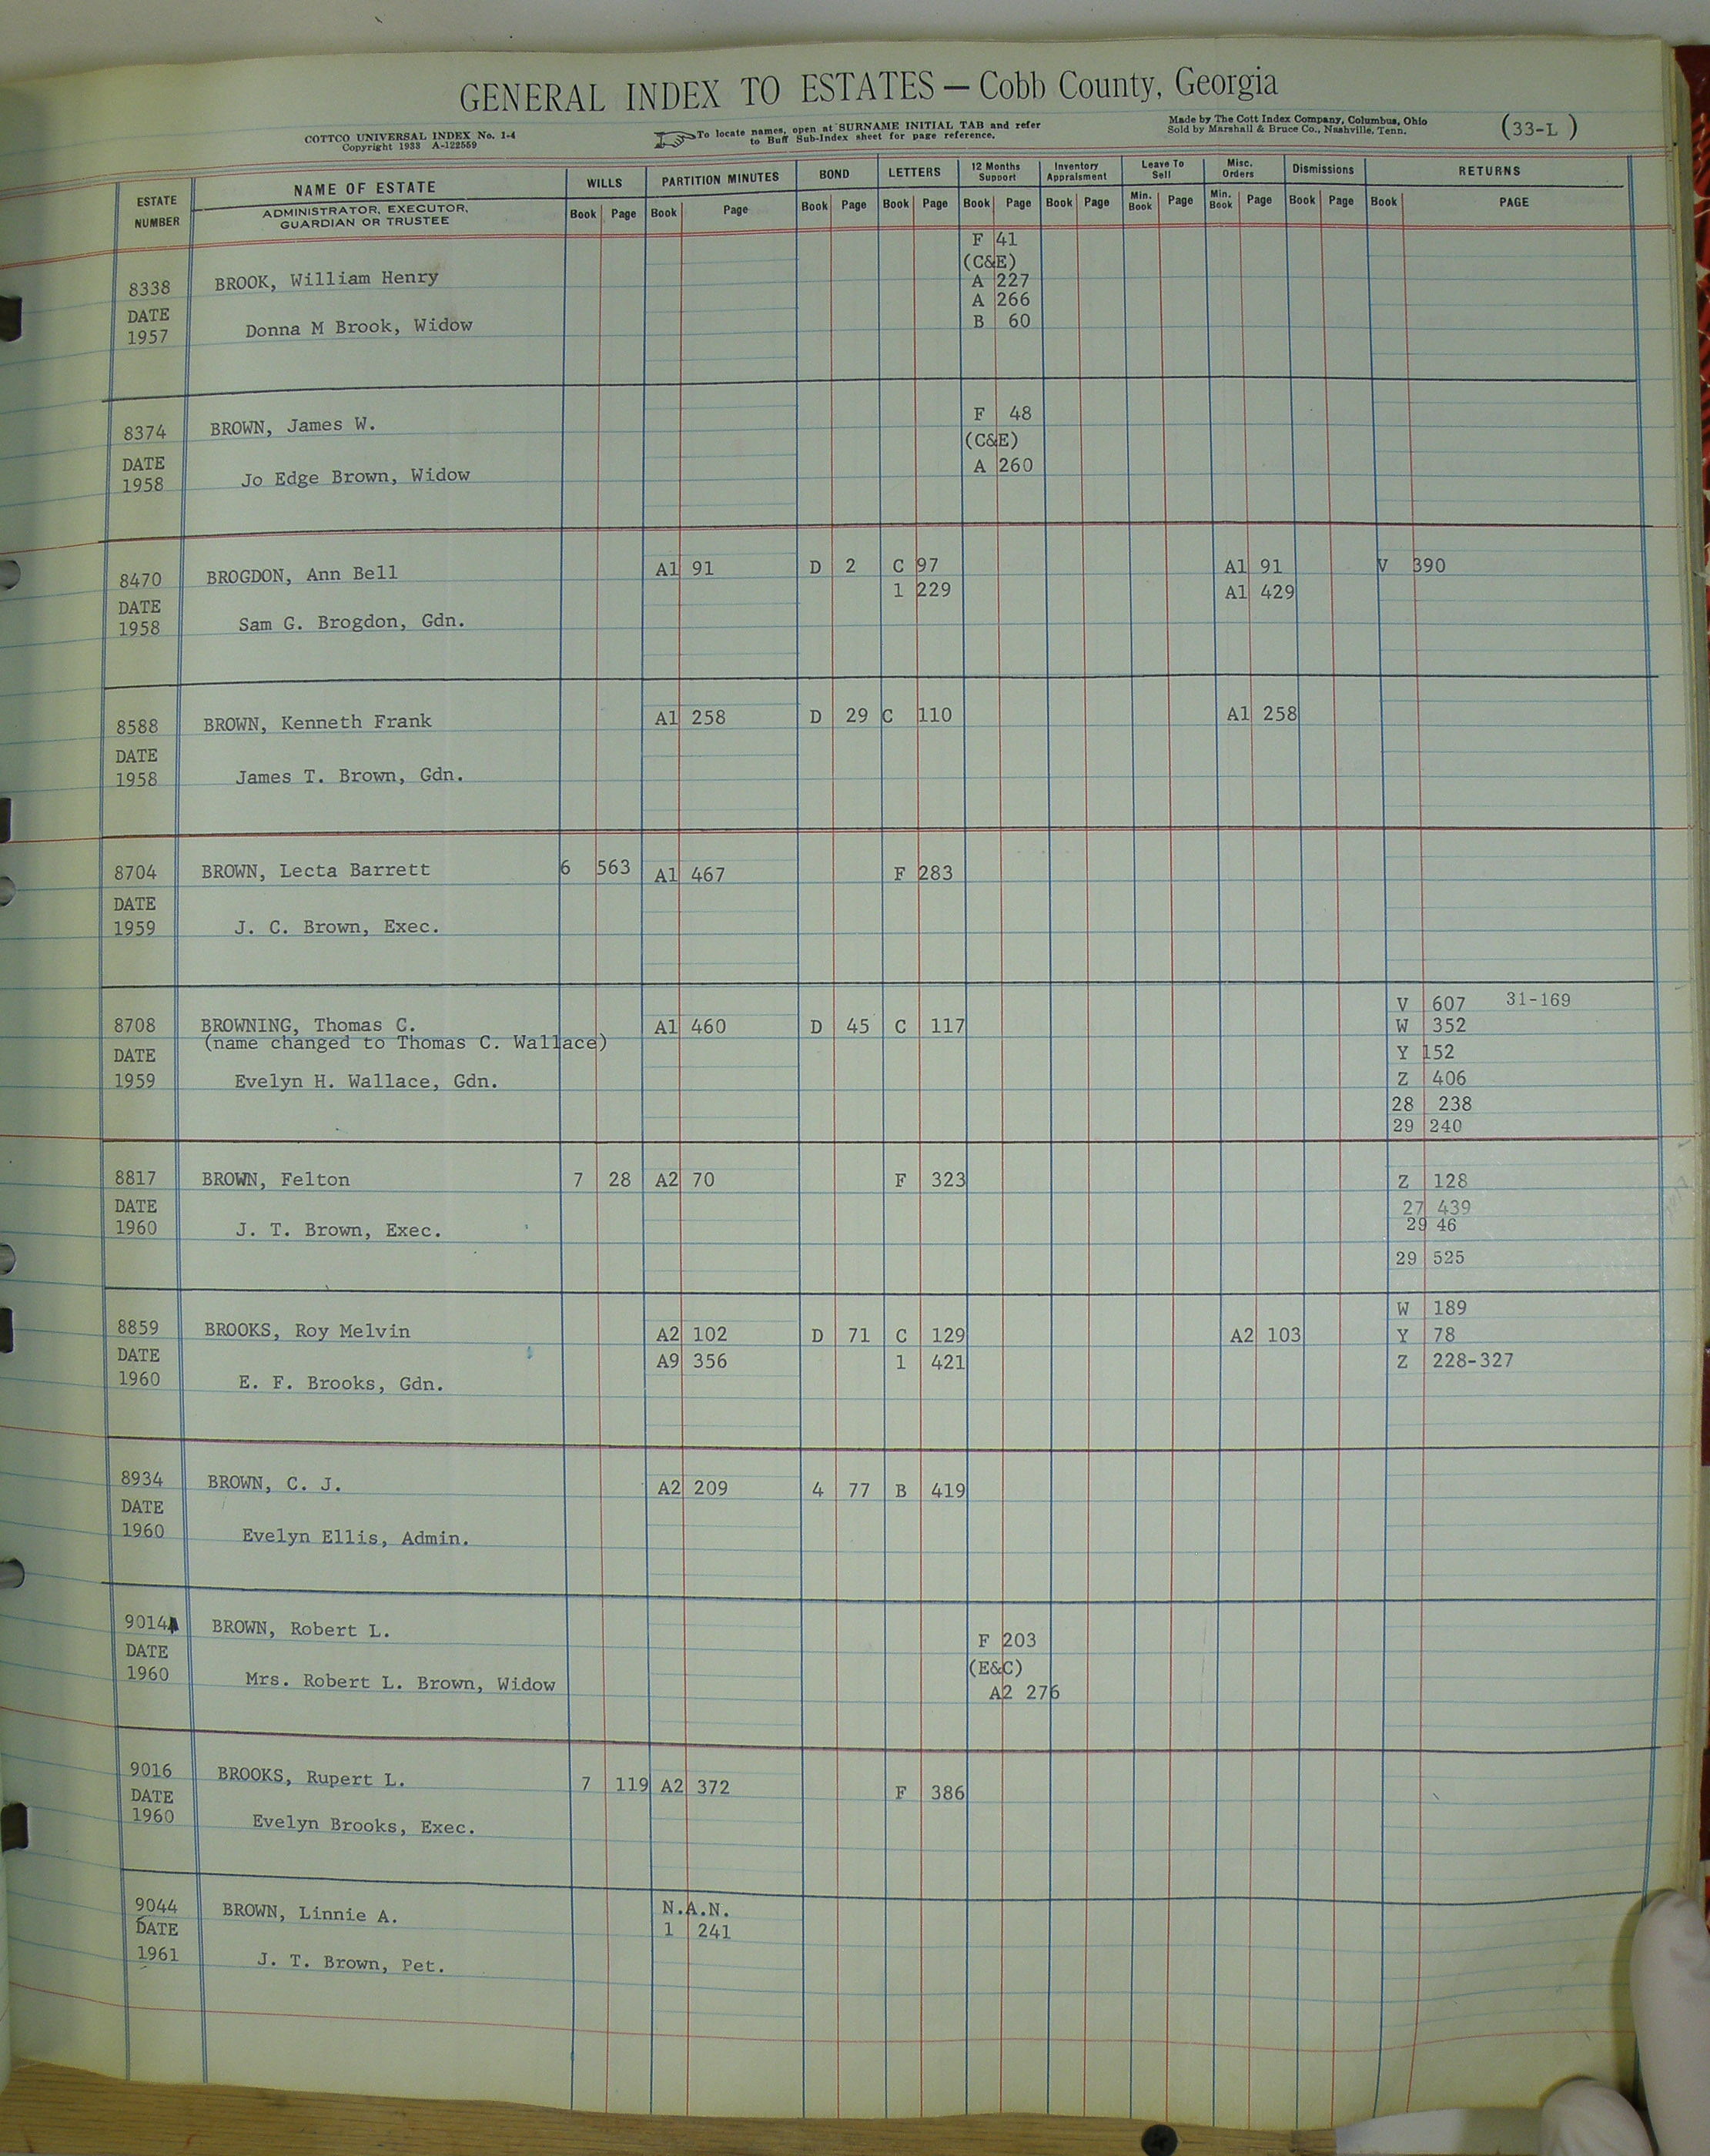 GENERAL INDEX TO ESTATES — Cobb County, Georgia
COTTCO UNIVERSAL INDEX No. 1-4
Copyright 1933 A-122559
To locate names, open at SURNAME INITIAL TAB and refer
to Buff Sub-Index sheet for page reference.
Made by The Cott Index Company, Columbus, Ohio
Sold by Marshall & Bruce Co., Nashville, Tenn.
(33-L )
ESTATE NUMBER NAME OF ESTATE WILLS PARTITION MINUTES BOND LETTERS 12 Months Support Inventory Appraisment Leave To Sell Misc. Orders Dismissions RETURNS
ADMINISTRATOR, EXECUTOR, GUARDIAN OR TRUSTEE Book Page Book Page Book Page Book Page Book Page Book Page Min. Book Page Min. Book Page Book Page Book PAGE
F 41
(C&E)
8338 BROOK, William Henry A 227
A 266
DATE B 60
1957 Donna M Brook, Widow
F 48
8374 BROWN, James W.
(C&E)
DATE A 260
1958 Jo Edge Brown, Widow
8470 BROGDON, Ann Bell A1 91 D 2 C 97 A1 91 V 390
1 229 A1 429
DATE
1958 Sam G. Brogdon, Gdn.
8588 BROWN, Kenneth Frank A1 258 D 29 C 110 A1 258
DATE
1958 James T. Brown, Gdn.
8704 BROWN, Lecta Barrett 6 563 A1 467 F 283
DATE
1959 J. C. Brown, Exec.
V 607 31-169
8708 BROWNING, Thomas C. A1 460 D 45 C 117 W 352
(name changed to Thomas C. Wallace)
DATE Y 152
1959 Evelyn H. Wallace, Gdn. Z 406
28 238
29 240
8817 BROWN, Felton 7 28 A2 70 F 323 Z 128
DATE 27 439
1960 J. T. Brown, Exec. 29 46
29 525
W 189
8859 BROOKS, Roy Melvin A2 102 D 71 C 129 A2 103 Y 78
DATE A9 356 1 421 Z 228-327
1960 E. F. Brooks, Gdn.
8934 BROWN, C. J. A2 209 4 77 B 419
DATE
1960 Evelyn Ellis, Admin.
9014A BROWN, Robert L. F 203
DATE (E&C)
1960 Mrs. Robert L. Brown, Widow A2 276
9016 BROOKS, Rupert L. 7 119 A2 372 F 386
DATE
1960 Evelyn Brooks, Exec.
9044 BROWN, Linnie A. N.A.N.
DATE 1 241
1961 J. T. Brown, Pet.